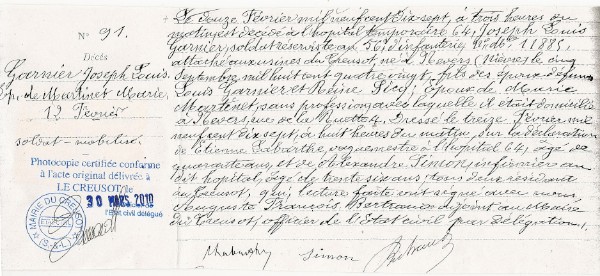 N° 91.
Décès
Garnier Joseph Louis
Ep. de Martinet Marie
12 Février
soldat-mobilisé
Photocopie certifiée conforme
à l'acte original délivrée à
LE CREUSOT, le
30 MARS 2010
l'Etat civil délégué
MAIRIE DU CREUSOT
(S.-&-L.)
Le douze Février mil neuf cent dix sept, à trois heures du
matin, est décédé à l'hôpital temporaire 64, Joseph Louis
Garnier, soldat réserviste au 56e d'infanterie, 11885,
attaché aux usines du Creusot, né à Nevers (Nièvre) le cinq
Septembre mil huit cent quatre vingt, fils des époux défunts
Louis Garnier et Reine ; Epoux de Marie
Martinet, sans profession, avec laquelle il était domicilié
à Nevers, rue de la 4. Dressé le treize Février mil
neuf cent dix sept, à huit heures du matin, sur la déclaration
de Etienne Labarthe, vaguemestre à l'hôpital 64, âgé de
quarante ans, et de Alexandre Simon, infirmier au
dit hôpital, âgé de trente six ans, tous deux résidant
au Creusot, qui, lecture faite, ont signé avec nous,
Auguste François Bertrand, adjoint au Maire
du Creusot, officier de l'Etat civil par délégation.
Simon